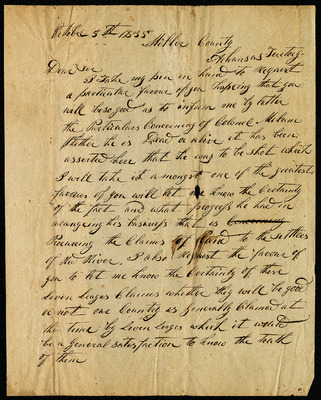 October 5th 1835
Miller County
Arkansas Territory
Dear Sir
I Take my pen in hand to Request
a particular favour of you hopeing that you
will be so good as to inform me by letter
the Particulars Concerning of Colonel Milam
Whether he is Dead or alive it has been
asserted here that he was to be shot which
I will take it a mongst one of the greatest
favours if you will let me know the Certainty
of the fact and what progress he had in
arangeing his business that is Concerning
Procuring the Claims of Land to the settlers
of the River. I also Request the favour of
you to let me know the Certainty of these
Leven Leages Claims whether they will be good
or not our County is Generally Claimed at
this time by Leven Leages which it would
be a General satisfaction to know the truth
of them